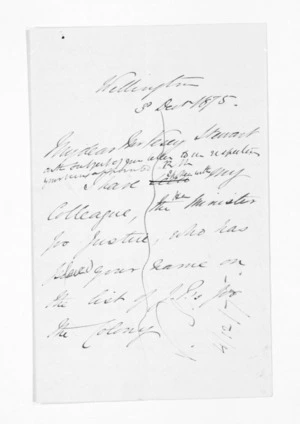 Wellington
3 Decr 1875.
My dear Mr Stuart
on the subject of your letter to me respecting
your
I have spoken with my
Colleague, the Hon Minister
for Justice, who has
placed your name on
the list of J.Ps for
the Colony